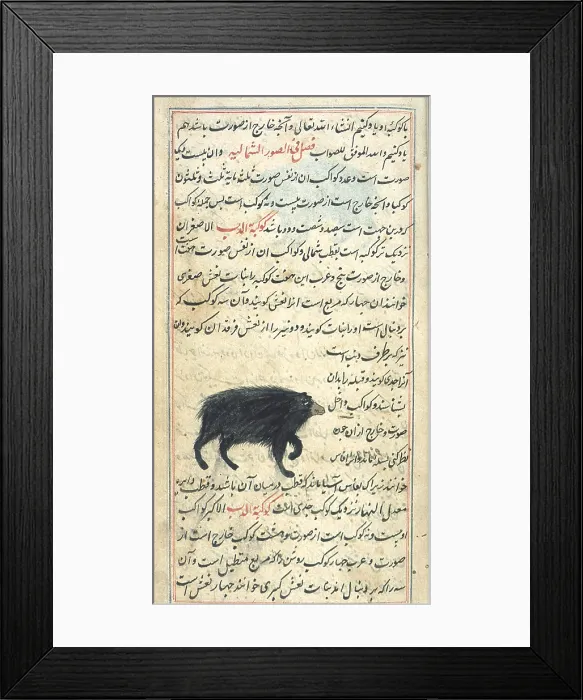 با کوکبه او یاد کنیم انشاء الله تعالی و آنچه خارج از صورت باشد هم
یاد کنیم و الله الموفق للصواب فصل فی الصور الشمالیه و ان بیست و یک
صورت است و عدد کواکب ان از نفس صورت
کوکب و آنچه خارج است از صورت بیست و نه کوکب است پس جمله کواکب
که درین جهت است سیصد و شصت و دو باشد کوکبة الدب الاصغر ان
نزدیک تر کوکبه است بقطب شمالی و کواکب ان از نفس صورت هفت است
و خارج از صورت پنج و عرب این هفت کوکبه را بنات نعش صغری
خوانند از ان چهار که مربع است انرا نعش کویند و آن سه کوکب که
بر دنبال است او را بنات کویند و دو نیر را از نعش فرقدان کویند و ان
نیر که بر طرف دنب است
آنرا جدی کویند و قبله را بدان
بشناسند و کواکب داخل
صورت و خارج از ان چون
نظر کنی
خوانند زیرا که بفاس آسیا ماند که قطب در میان آن باشد و قطب دایره
معدل النهار نزدیک کوکب جدی است کوکبة الدب الاکبر کواکب
او بیست و نه کوکب است از صورت و هشت کوکب خارج است از
صورت و عرب چهار کوکب روشن را که مربع مستطیل است و آن
سه را که بر دنبال اند بنات نعش کبری خوانند چهار نعش است